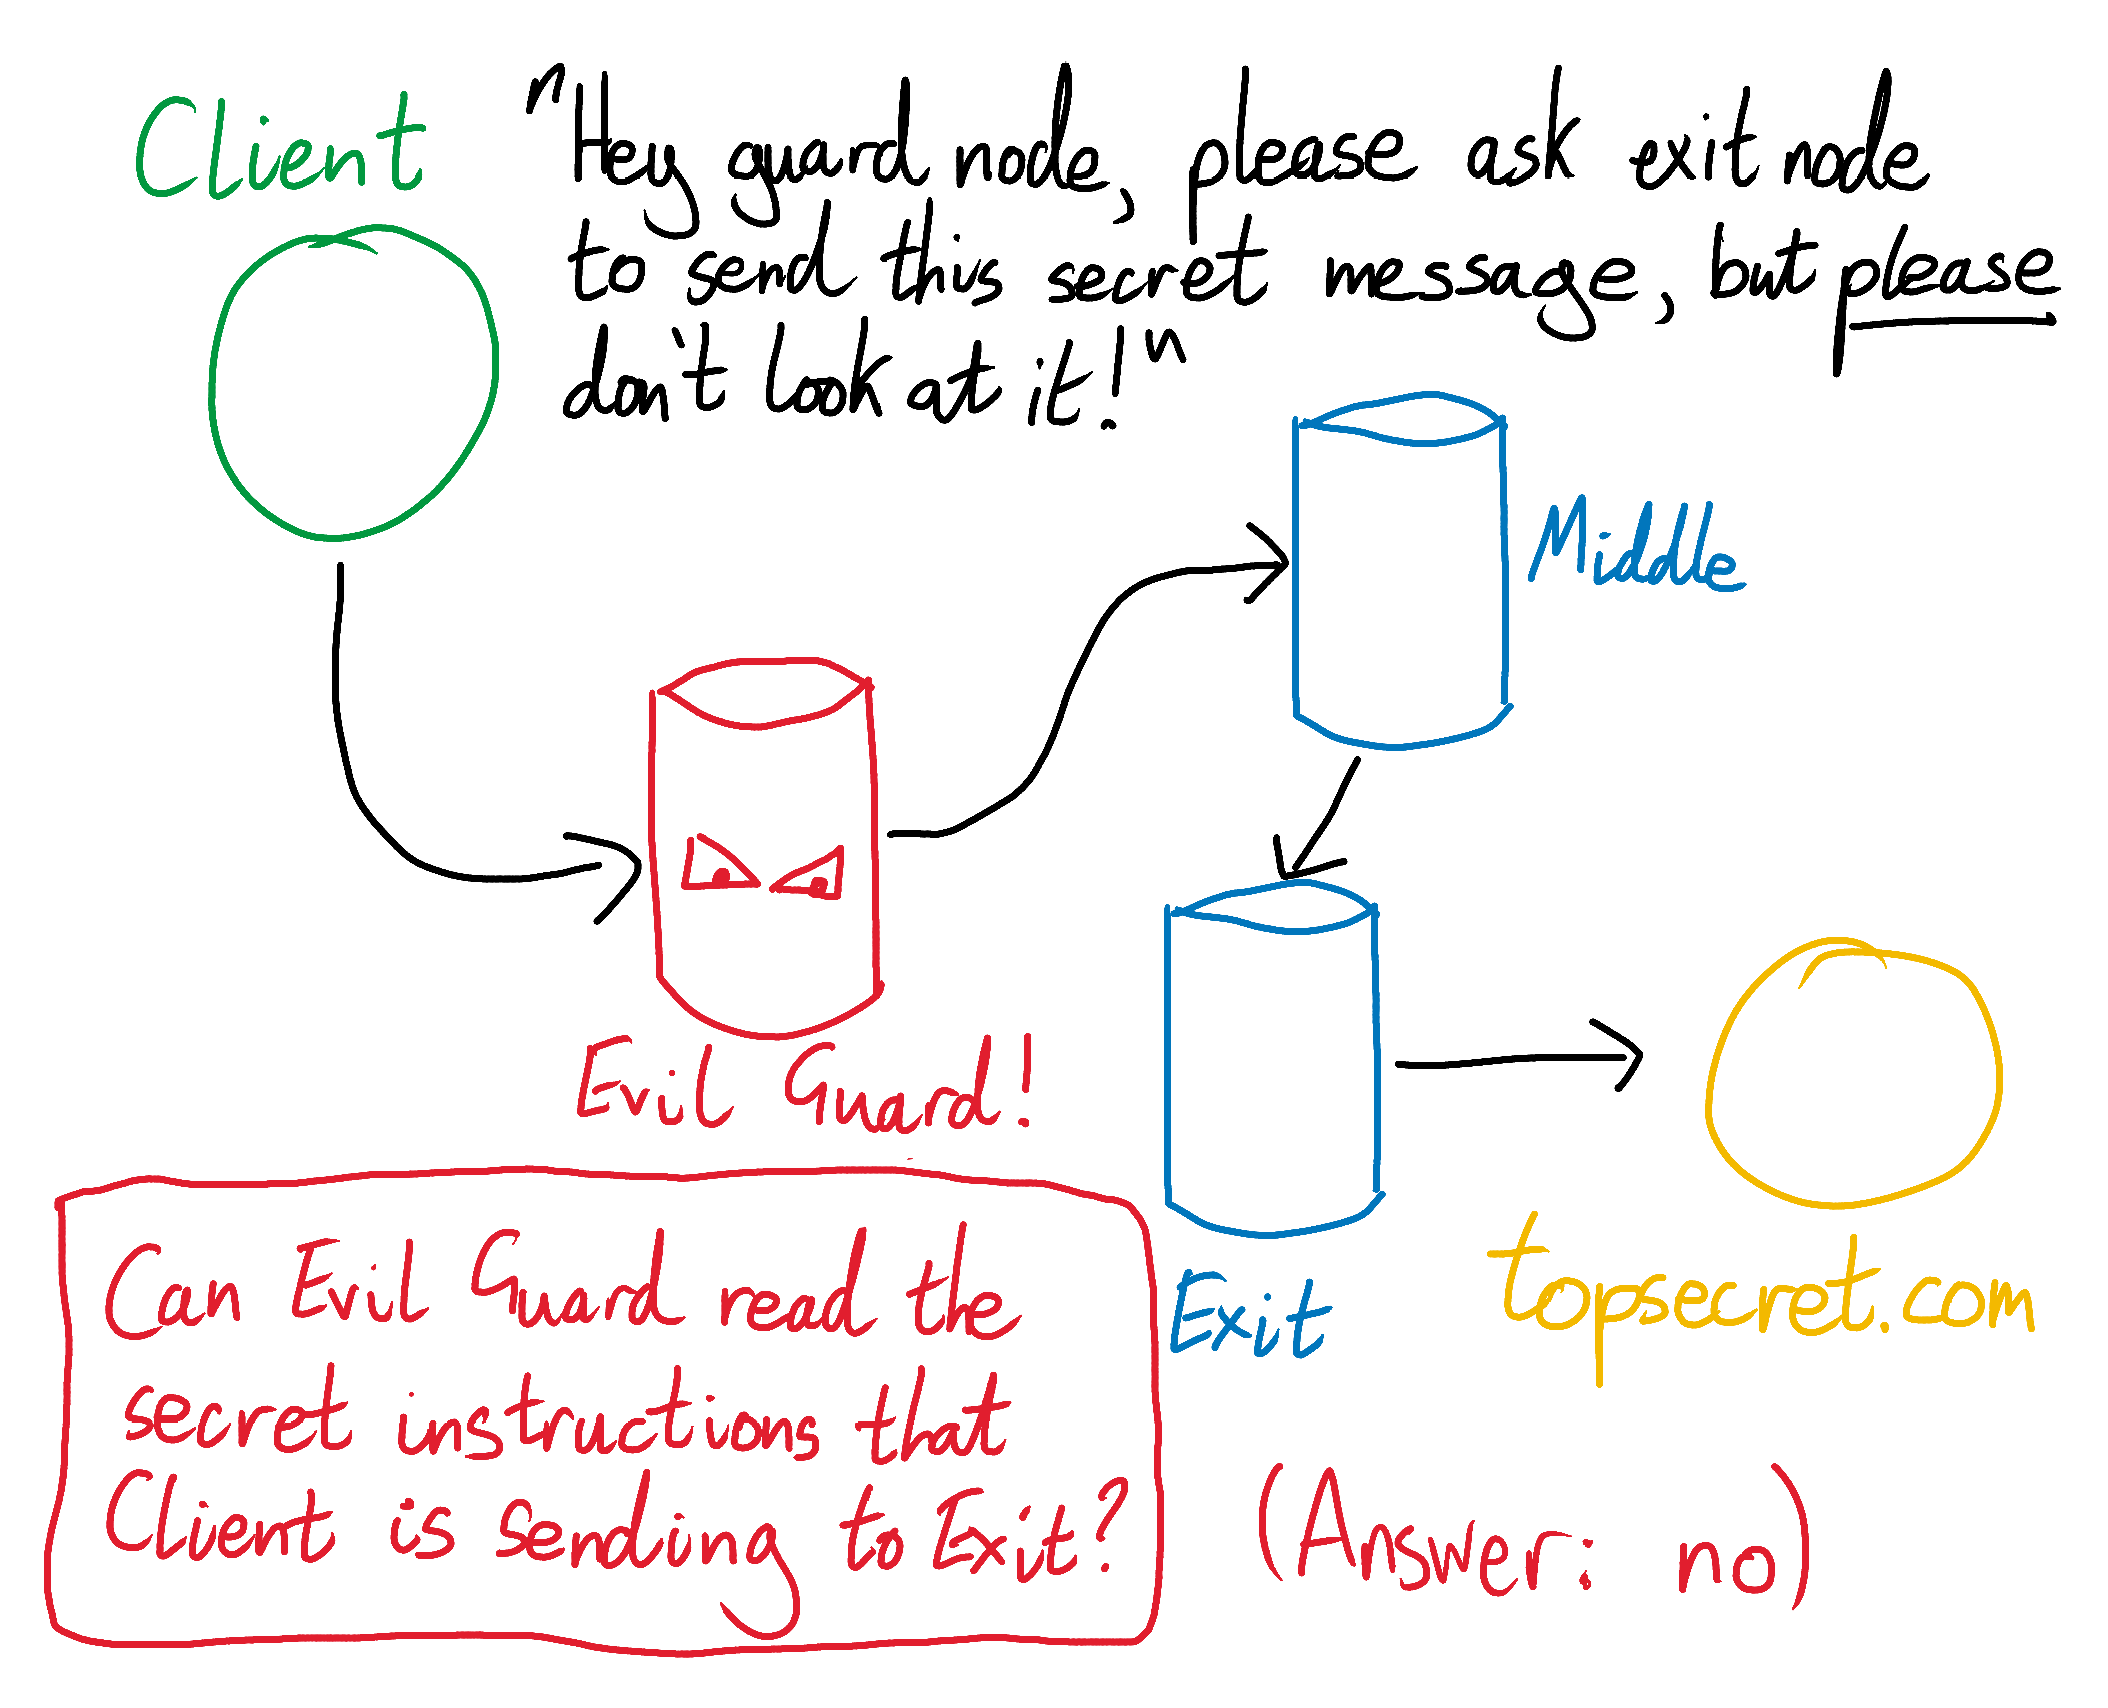 Client
"Hey guard node, please ask exit node
to send this secret message, but please
don't look at it!"
Middle
Evil Guard!
Exit
topsecret.com
Can Evil Guard read the
secret instructions that
Client is sending to Exit?
(Answer: no)